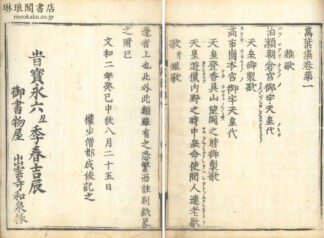 琳琅閣書店
rinrokaku.co.jp
萬葉集卷第一
雜歌
泊瀬朝倉宮御宇天皇代
天皇御製歌
高市岡本宮御宇天皇代
天皇登香具山望國之時御製歌
天皇遊猟内野之時中皇命使間人連老獻
歌并短歌
邊者上也此外此類雖有之恐繁而註別紙畧
之而已
文和二年癸巳中秋八月二十五日
權少僧都成俊記之
旹寶永六丑季春吉辰
御書物屋
出雲寺和泉掾